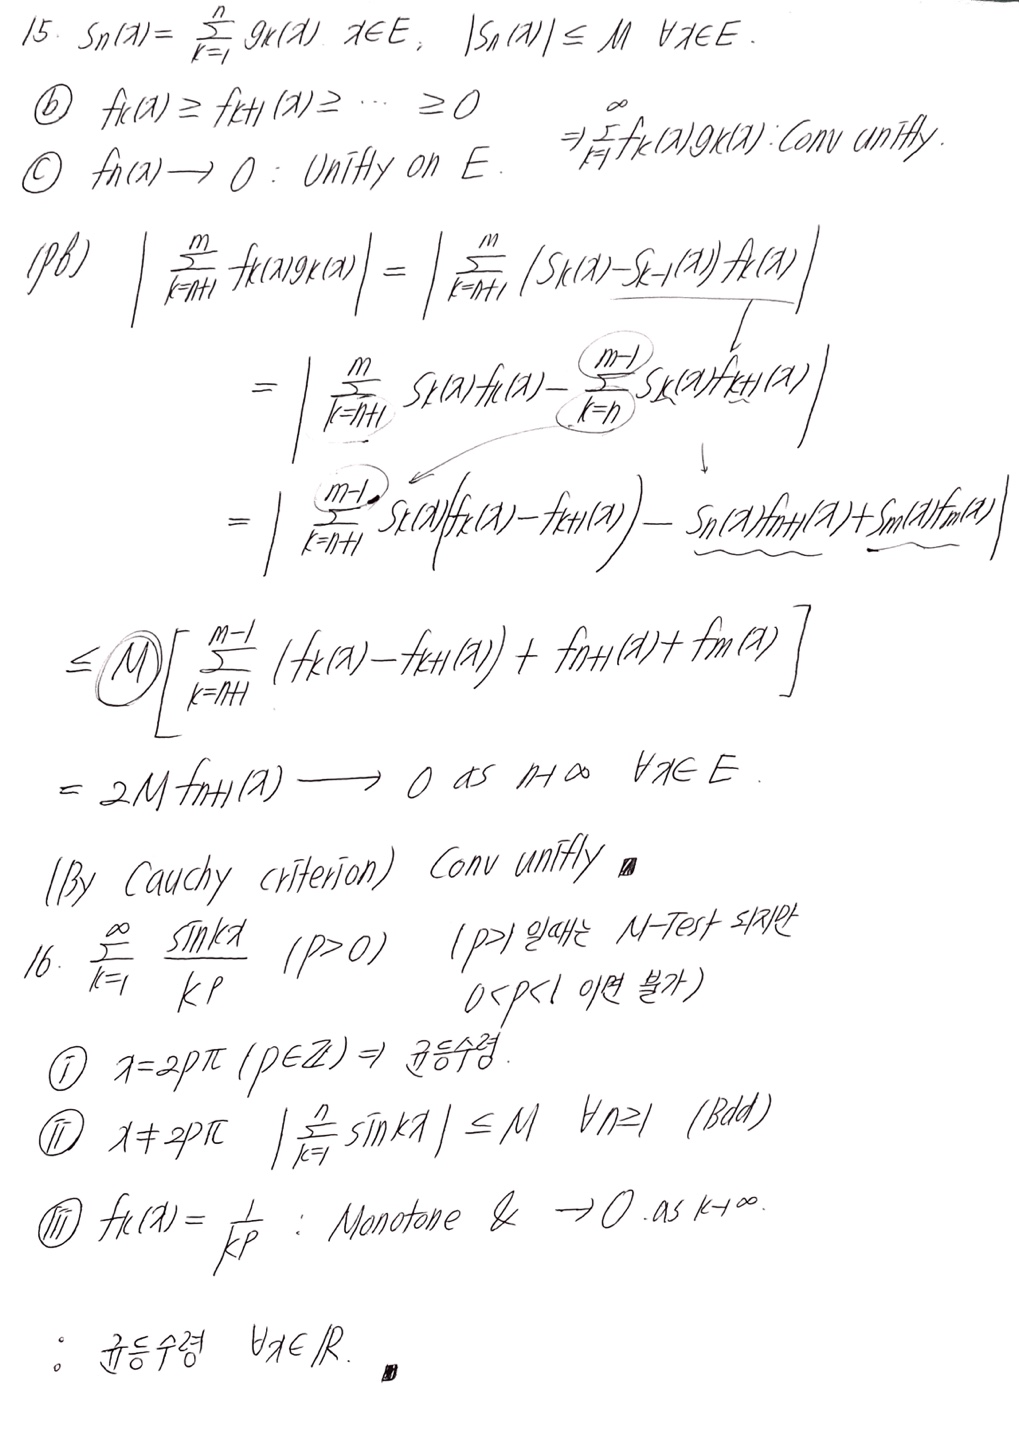 15. Sn(x) = Σ_{k=1}^{n} gk(x) x∈E, |Sn(x)| ≤ M ∀x∈E.
ⓑ fk(x) ≥ fk+1(x) ≥ ⋯ ≥ 0
⇒ Σ_{k=1}^{∞} fk(x)gk(x) : Conv unifly.
ⓒ fn(x) → 0 : Unifly on E.
(pf) | Σ_{k=n+1}^{m} fk(x)gk(x) | = | Σ_{k=n+1}^{m} (Sk(x) - Sk-1(x)) fk(x) |
= | Σ_{k=n+1}^{m} Sk(x)fk(x) - Σ_{k=n}^{m-1} Sk(x)fk+1(x) |
= | Σ_{k=n+1}^{m-1} Sk(x)(fk(x) - fk+1(x)) - Sn(x)fn+1(x) + Sm(x)fm(x) |
≤ M [ Σ_{k=n+1}^{m-1} (fk(x) - fk+1(x)) + fn+1(x) + fm(x) ]
= 2M fn+1(x) ⟶ 0 as n→∞ ∀x∈E.
(By Cauchy criterion) Conv unifly ∎
16. Σ_{k=1}^{∞} sinkx / k^p (p>0) (p>1 일때는 M-Test 되지만
0<p<1 이면 불가)
ⓘ x=2pπ (p∈ℤ) ⇒ 균등수렴.
ⓘⓘ x≠2pπ | Σ_{k=1}^{n} sinkx | ≤ M ∀n≥1 (Bdd)
ⓘⓘⓘ fk(x) = 1/k^p : Monotone & → 0 .as k→∞.
: 균등수렴 ∀x∈ℝ. ∎